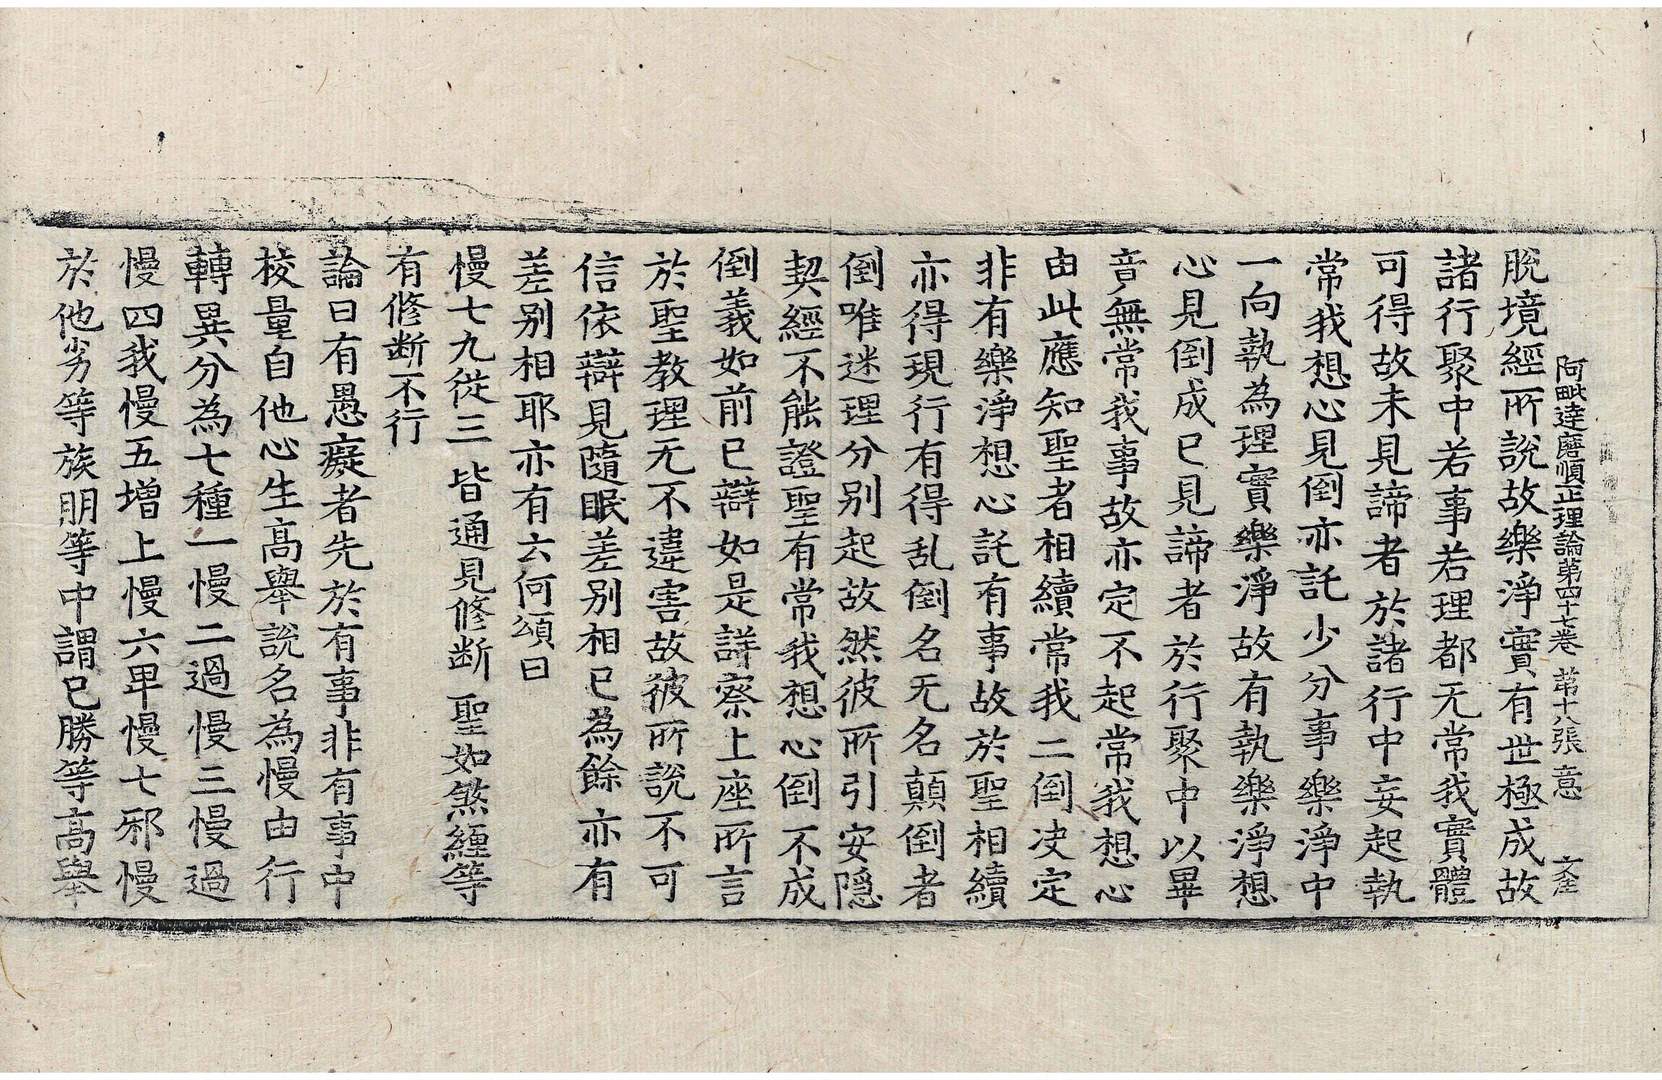 阿毗達磨順正理論第四十七卷 第十八張 意
脫境經所說故樂淨實有世極成故
諸行聚中若事若理都无常我實體
可得故未見諦者於諸行中妄起執
常我想心見倒亦託少分事樂淨中
一向執為理實樂淨故有執樂淨想
心見倒成已見諦者於行聚中以畢
竟無常我事故亦定不起常我想心
由此應知聖者相續常我二倒决定
非有樂淨想心託有事故於聖相續
亦得現行有得乱倒名无名顛倒者
倒唯迷理分别起故然彼所引安隱
契經不能證聖有常我想心倒不成
倒義如前已辯如是詳察上座所言
於聖教理无不違害故彼所說不可
信依辯見隨眠差别相已為餘亦有
差别相耶亦有云何頌曰
慢七九從三 皆通見修断 聖如煞纏等
有修断不行
論曰有愚癡者先於有事非有事中
校量自他心生高舉說名為慢由行
轉異分為七種一慢二過慢三慢過
慢四我慢五增上慢六卑慢七邪慢
於他劣等族朋等中謂已勝等高舉